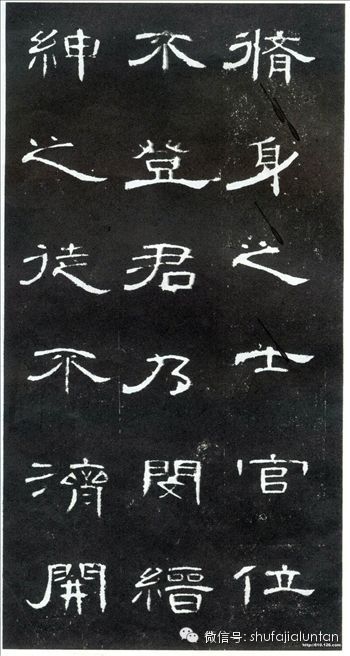 脩身之士官位
不登君乃閔縉
紳之徒不濟開
微信号: shufajialuntan
http://610.126.com